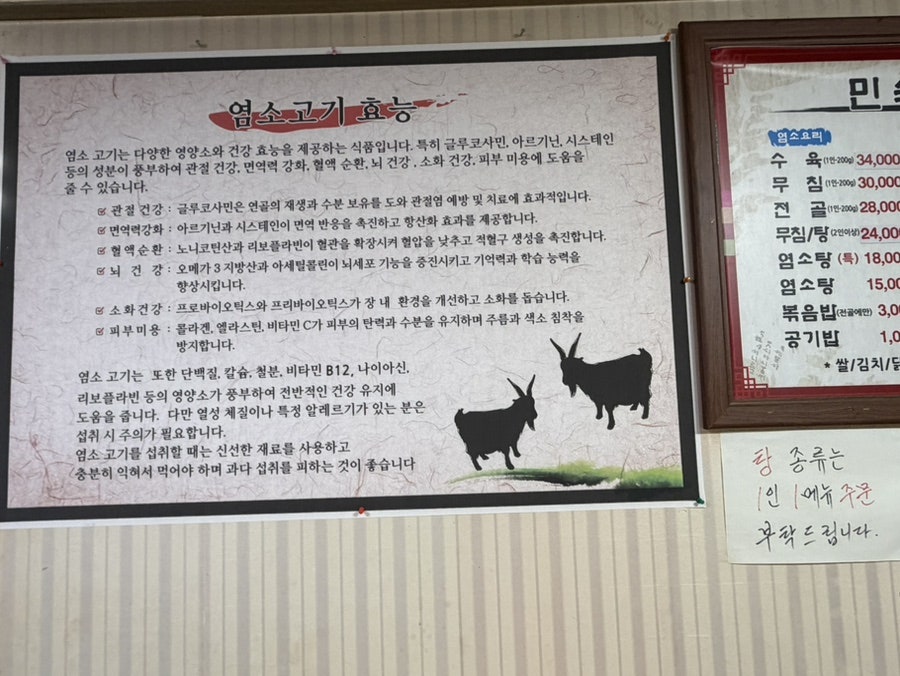 염소고기 효능
염소 고기는 다양한 영양소와 건강 효능을 제공하는 식품입니다. 특히 글루코사민, 아르기닌, 시스테인
등의 성분이 풍부하여 관절 건강, 면역력 강화, 혈액 순환, 뇌 건강 , 소화 건강, 피부 미용에 도움을
줄 수 있습니다.
관절건강 : 글루코사민은 연골의 재생과 수분 보유를 도와 관절염 예방 및 치료에 효과적입니다.
면역력강화 : 아르기닌과 시스테인이 면역 반응을 촉진하고 항산화 효과를 제공합니다.
혈액순환 : 노니코틴산과 리보플라빈이 혈관을 확장시켜 혈압을 낮추고 적혈구 생성을 촉진합니다.
뇌 건 강 : 오메가 3 지방산과 아세틸콜린이 뇌세포 기능을 증진시키고 기억력과 학습 능력을
향상시킵니다.
소화건강 : 프로바이오틱스와 프리바이오틱스가 장 내 환경을 개선하고 소화를 돕습니다.
피부미용 : 콜라겐, 엘라스틴, 비타민 C가 피부의 탄력과 수분을 유지하며 주름과 색소 침착을
방지합니다.
염소 고기는 또한 단백질, 칼슘, 철분, 비타민 B12, 나이아신,
리보플라빈 등의 영양소가 풍부하여 전반적인 건강 유지에
도움을 줍니다. 다만 열성 체질이나 특정 알레르기가 있는 분은
섭취 시 주의가 필요합니다.
염소 고기를 섭취할 때는 신선한 재료를 사용하고
충분히 익혀서 먹어야 하며 과다 섭취를 피하는 것이 좋습니다
민
염소요리
수 육 (1인-200g) 34,000
무 침 (1인-200g) 30,000
전 골 (1인-200g) 28,000
무침/탕 (2인이상) 24,000
염소탕 (특) 18,00
염소탕 15,00
볶음밥 (전골에만) 3,00
공기밥 1,0
* 쌀/김치/닭
탕 종류는
1인 1메뉴 주문
부탁드립니다.